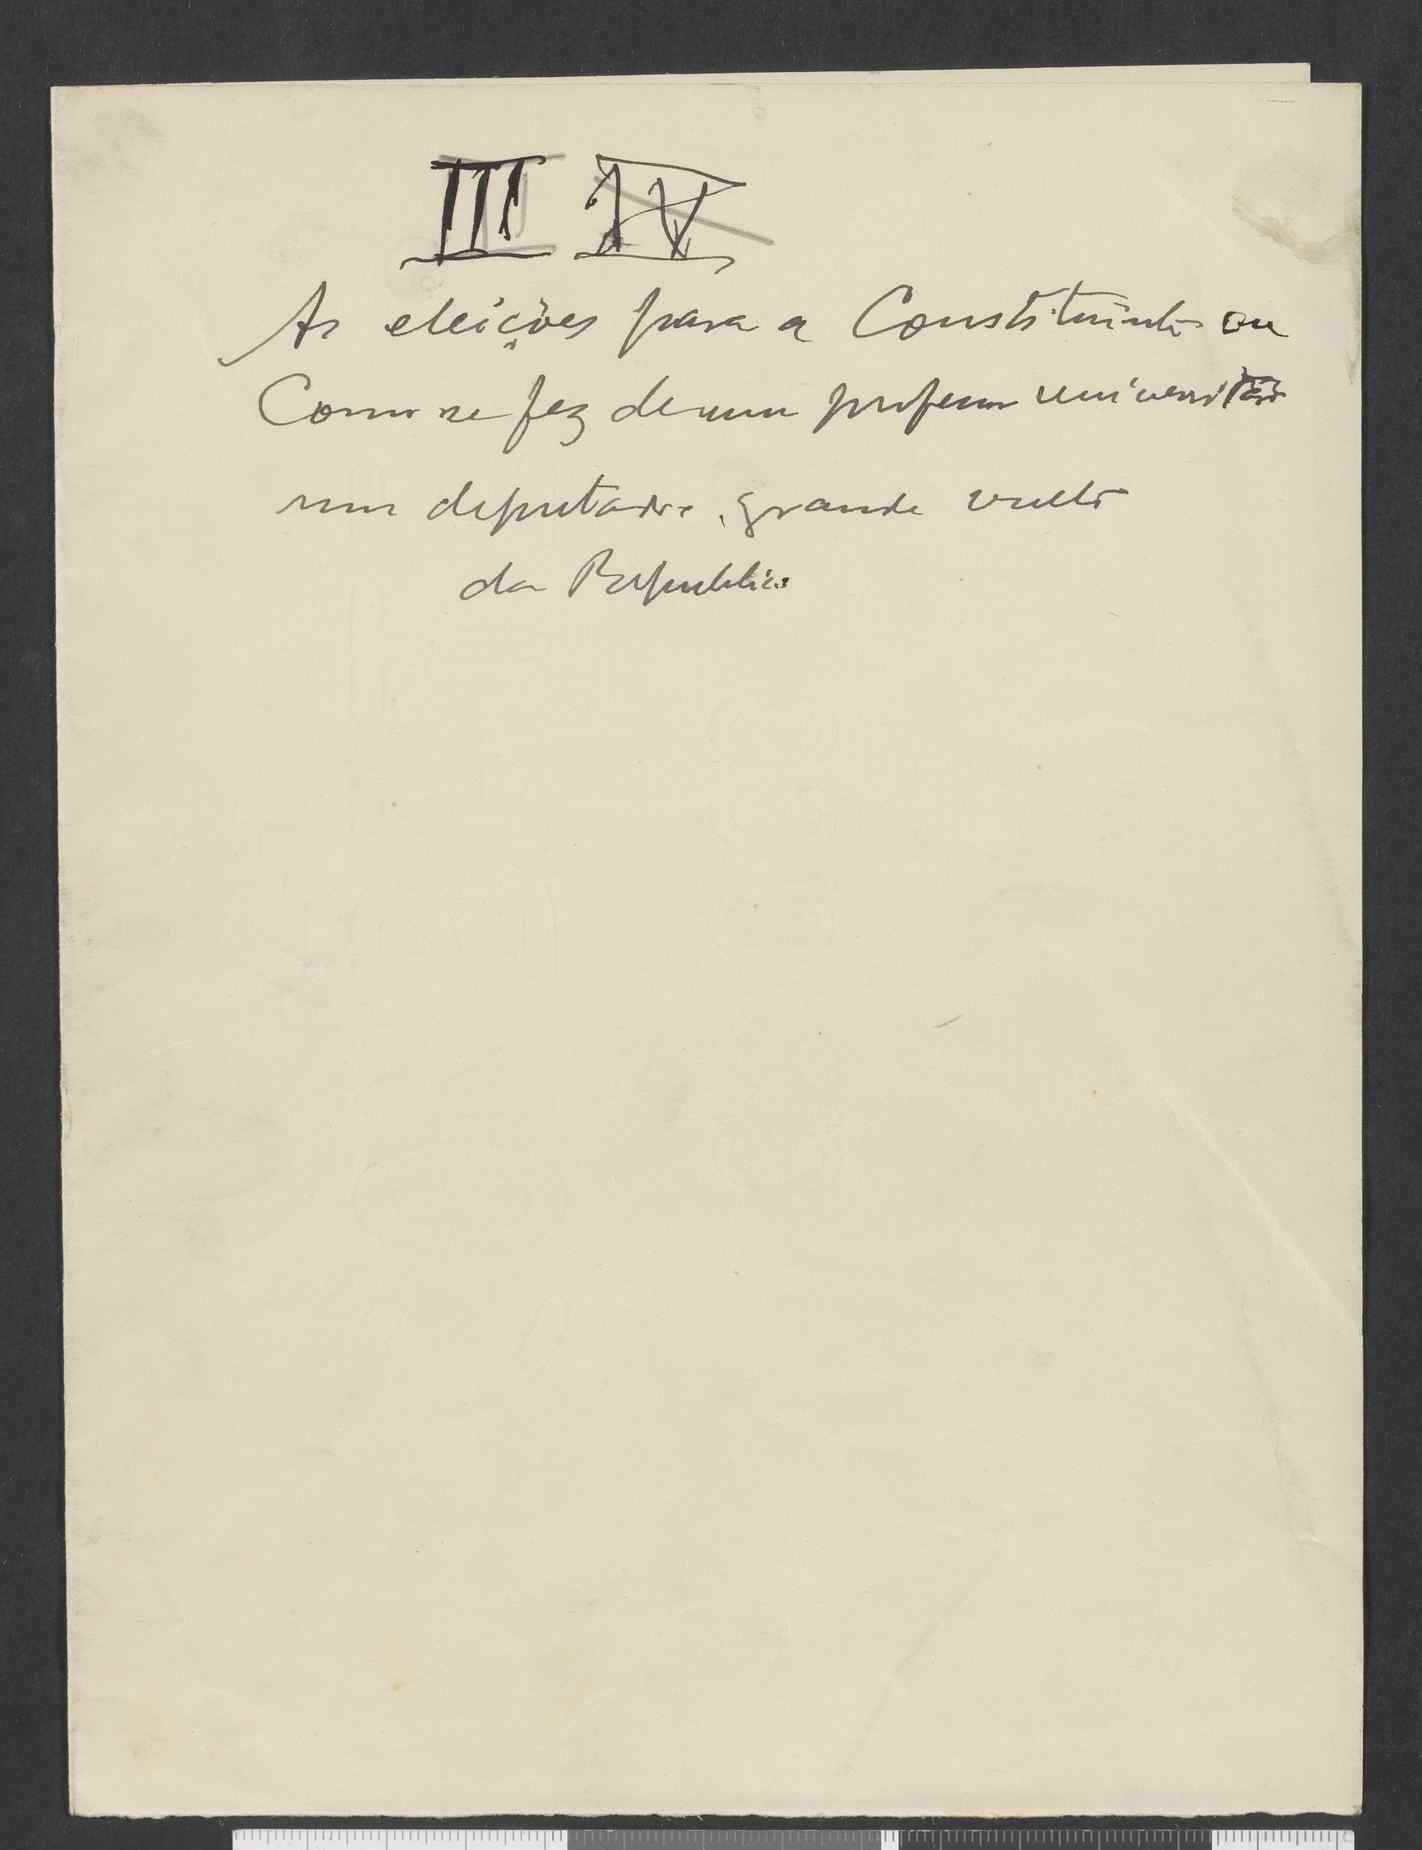 III IV
As eleições para a Constituinte ou
Como se fez de um professor universitário
um deputado, grande vulto
da Republica